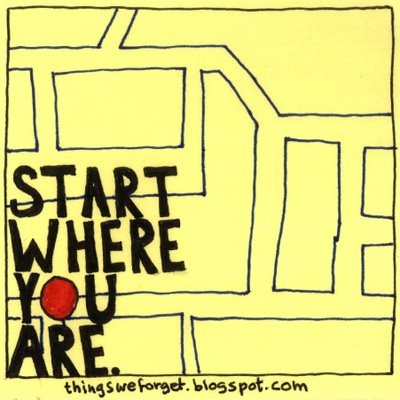 START
WHERE
YOU
ARE.
thingsweforget.blogspot.com